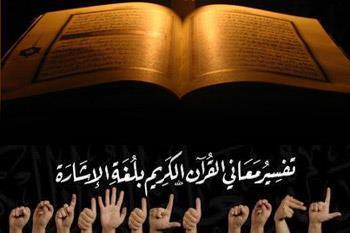 تفسير معاني القرآن الكريم بلغة الإشارة